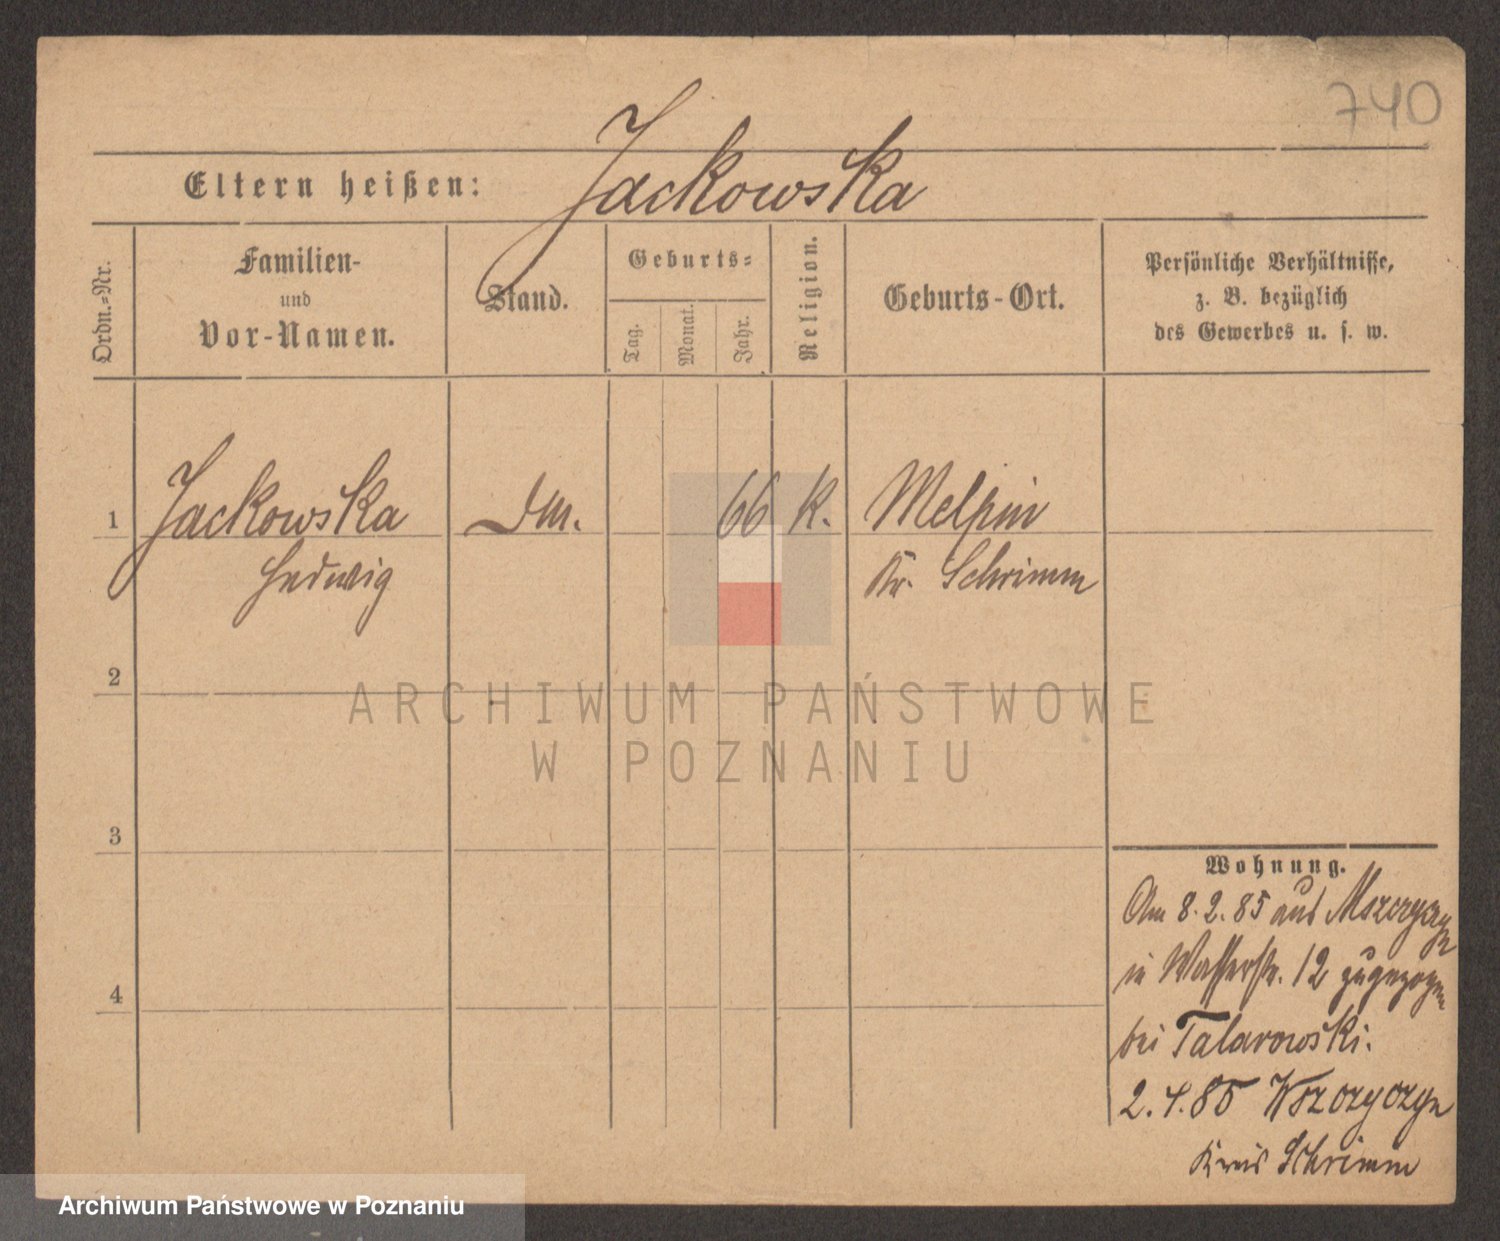 740
Eltern heißen: Jackowska
Ordn.-Nr.
Familien-
und
Vor-Namen.
Stand.
Geburts-
Tag.
Monat.
Jahr.
Religion.
Geburts-Ort.
Persönliche Verhältnisse,
z. B. bezüglich
des Gewerbes u. s. w.
1 Jackowska Dm. 66 K. Melpin
Hedwig Kr. Schrimm
2
ARCHIWUM PAŃSTWOWE
W POZNANIU
3
Wohnung.
Am 8.2.85 aus
in Wasserstr. 12 zugezogen
bei Talarowski.
2.4.85
Kreis Schrimm
4
Archiwum Państwowe w Poznaniu